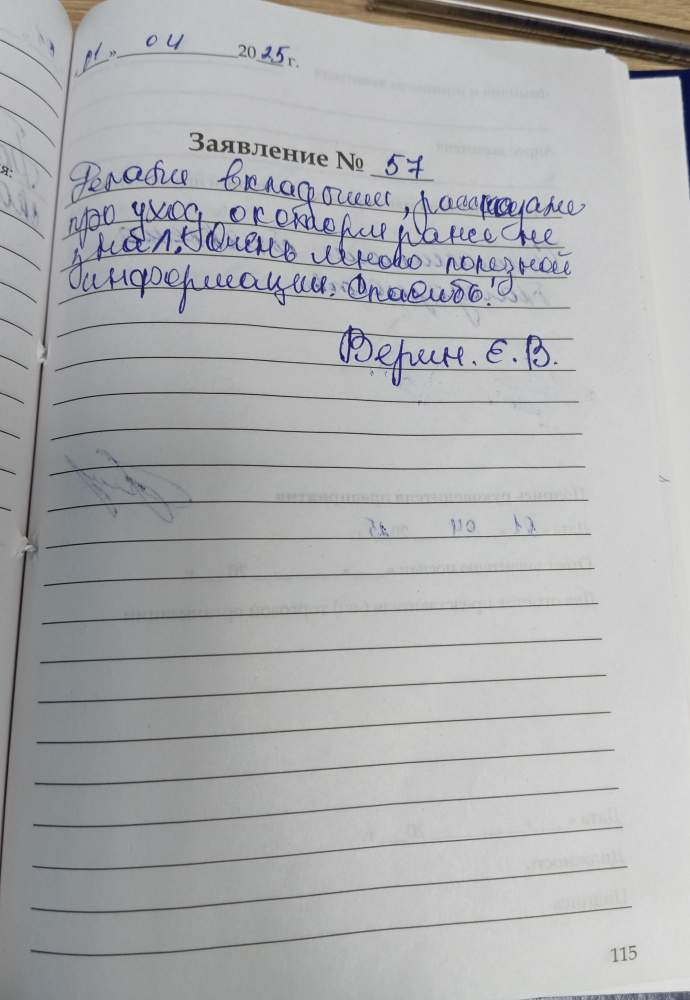 «01» 04 2025 г.
Заявление № 57
Делали вкладыши, рассказали
про уход о котором ранее не
знал. Очень много полезной
информации. Спасибо!
Верин. Е. В.
115